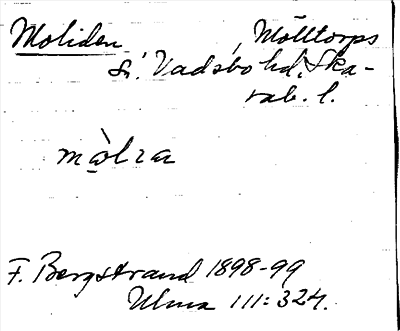 Moliden Mölltorps
sn. Vadsbo hd, Ska-
rab. l.
mòlꞛa
F. Bergstrand 1898-99
Ulma 111:324.